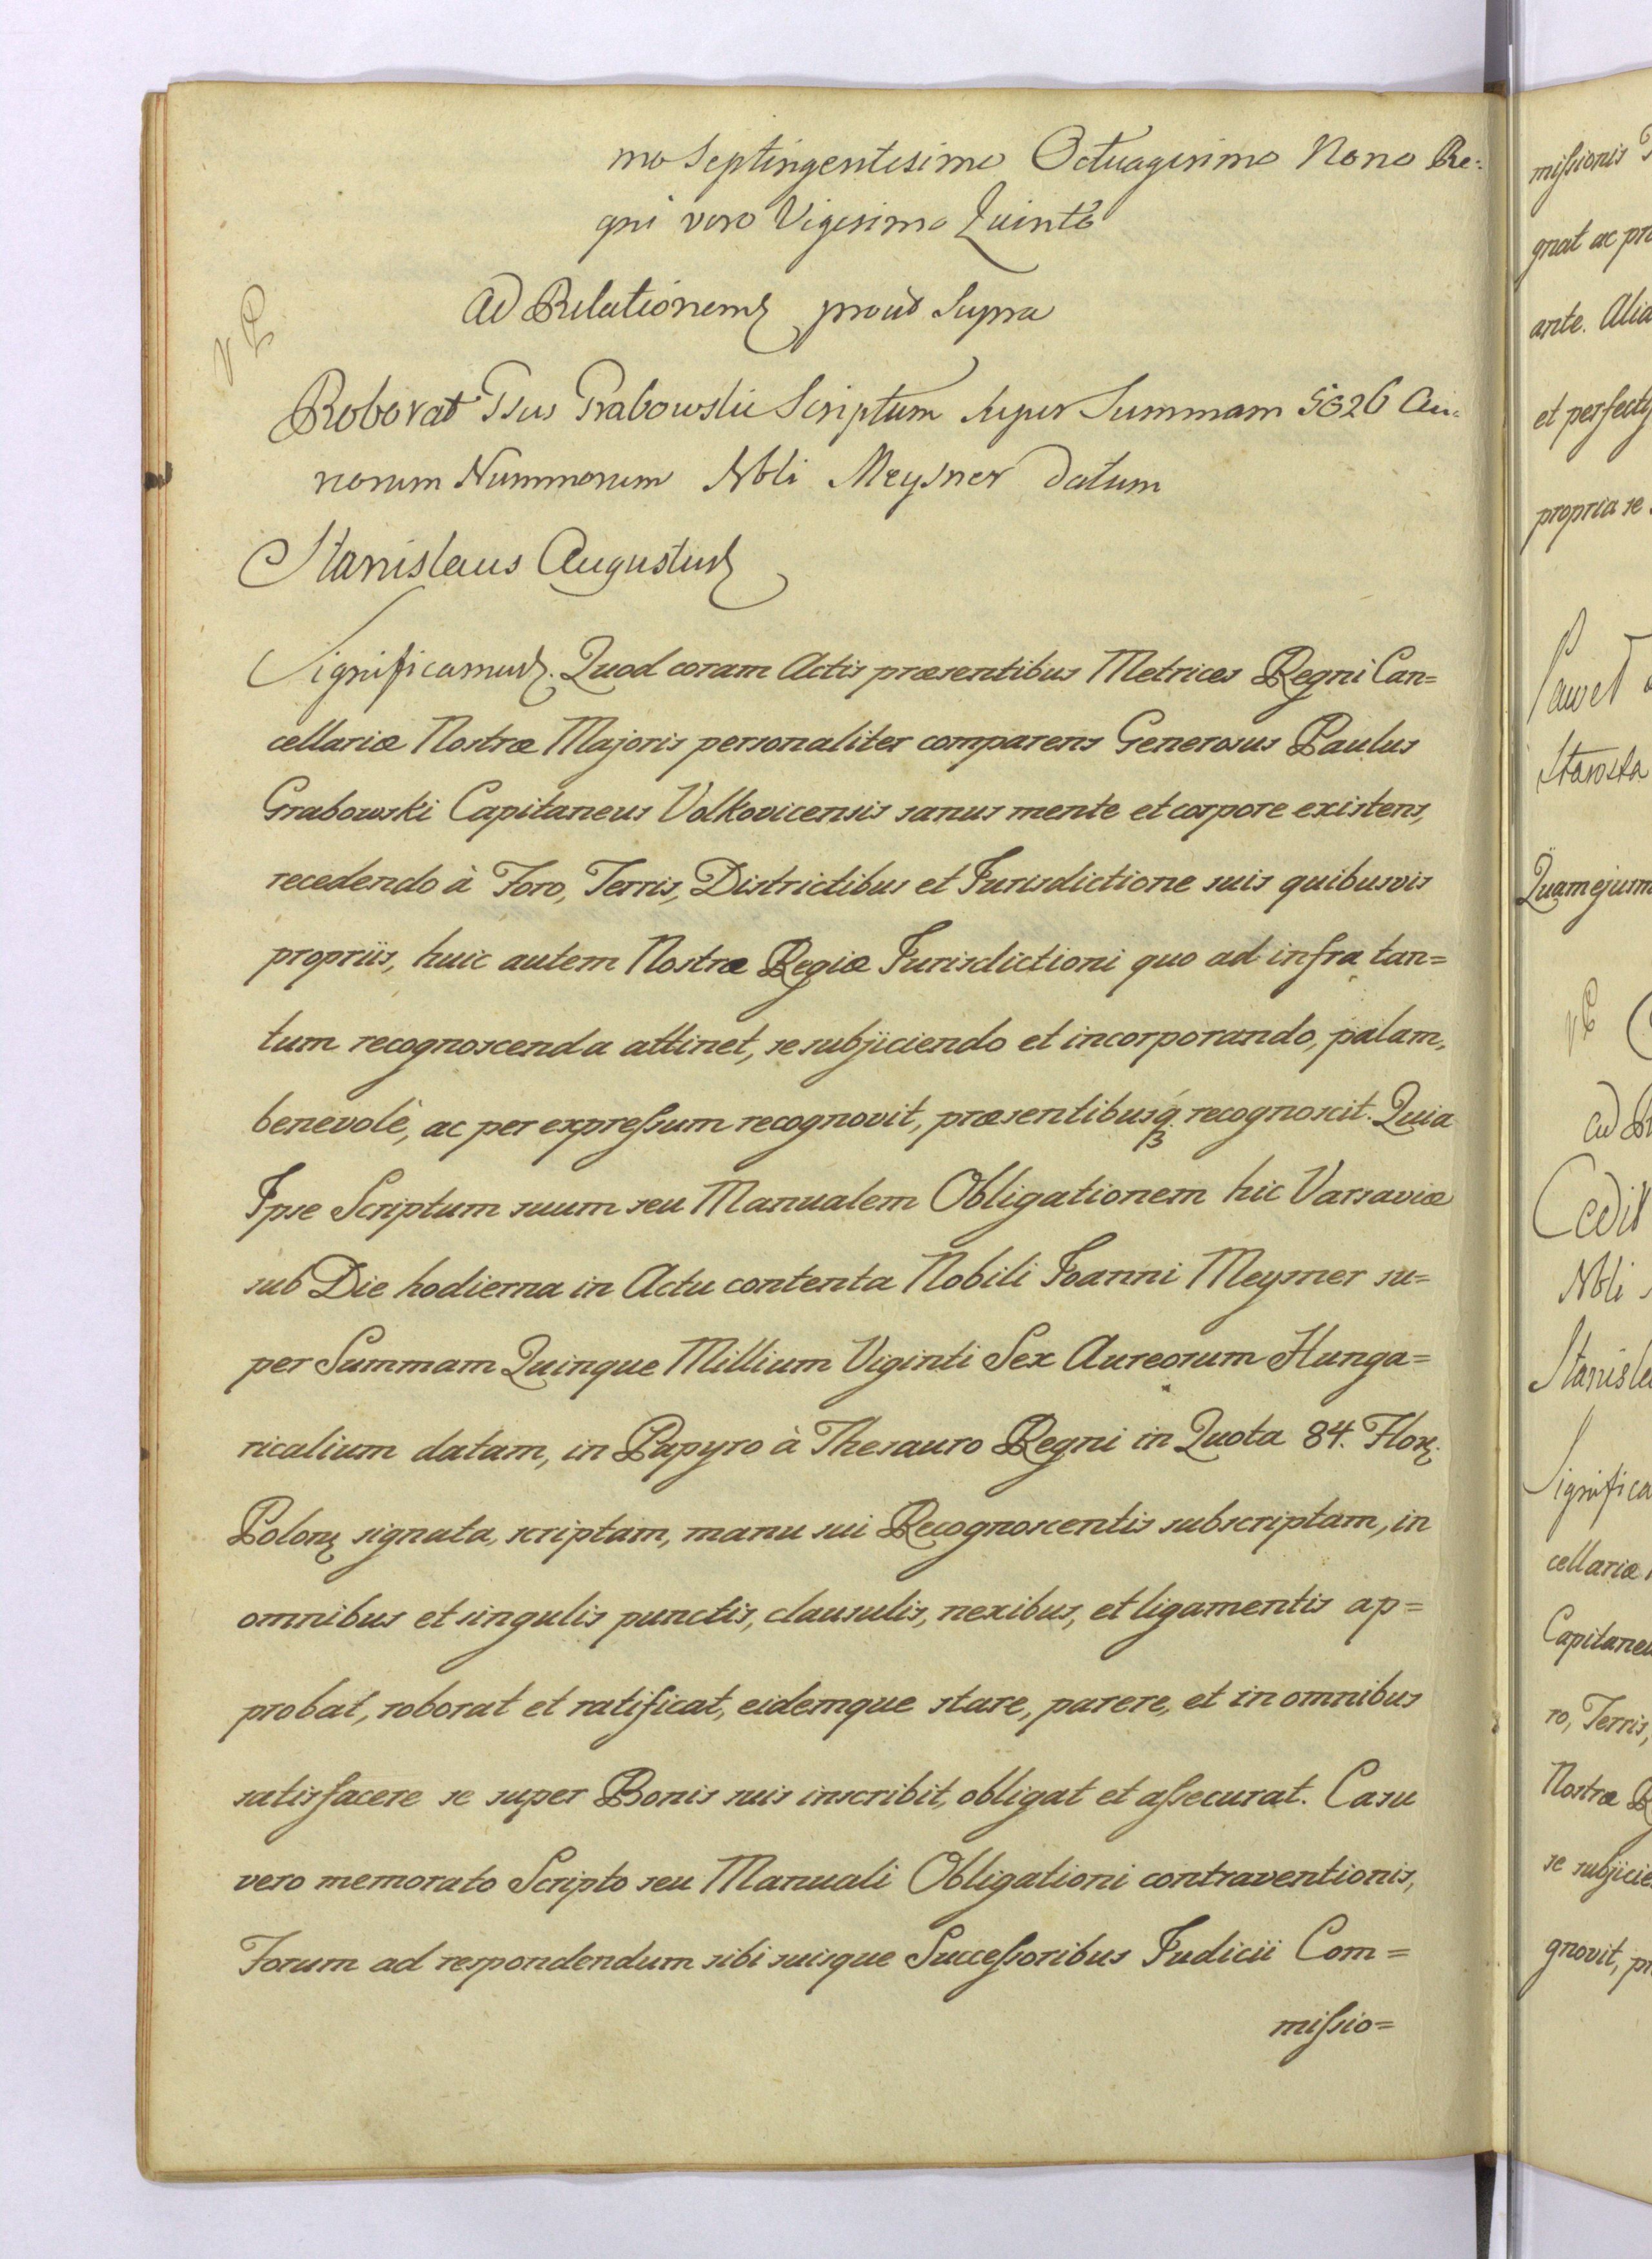 mo Septingentesimo Octuagesimo Nono Re:
gni vero Vigesimo Quinto
Ad Relationem prout Supra
Roborat Gsus Grabowski Scriptum super Summam 5026 Au:
reorum Nummorum Nbli Meysner datum
Stanislaus Augustus
Significamus. Quod coram Actis præsentibus Metrices Regni Can=
cellariæ Nostræ Majoris personaliter comparens Generosus Paulus
Grabowski Capitaneus Volkovicensis sanus mente et corpore existens,
recedendo à Foro, Terris, Districtibus et Jurisdictione suis quibusvis
propriis, huic autem Nostræ Regiæ Jurisdictioni quo ad infra tan=
tum recognoscenda attinet, se subjiciendo et incorporando, palam,
benevolè, ac per expreſsum recognovit, præsentibusq3 recognoscit. Quia
Ipse Scriptum suum seu Manualem Obligationem hic Varsaviæ
sub Die hodierna in Actu contenta Nobili Joanni Meysner su=
per Summam Quinque Millium Viginti Sex Aureorum Hunga=
ricalium datam, in Papyro à Thesauro Regni in Quota 84. Flor.
Polon signata, scriptam, manu sui Recognoscentis subscriptam, in
omnibus et singulis punctis, clausulis, nexibus, et ligamentis ap=
probat, roborat et ratificat, eidemque stare, parere, et in omnibus
satisfacere se super Bonis suis inscribit, obligat et aſsecurat. Casu
vero memorato Scripto seu Manuali Obligationi contraventionis,
Forum ad respondendum sibi suisque Succeſsoribus Judicii Com=
miſsio=
miſsionis
gnat ac pro
ante. Alia
et perfect
propria se
Pawel
Starosta
Quam ejusm
Cedit
Nbli
Stanisla
Significa
cellariæ
Capitaneu
ro, Terris,
Nostræ R
se subjicie
gnovit, pr